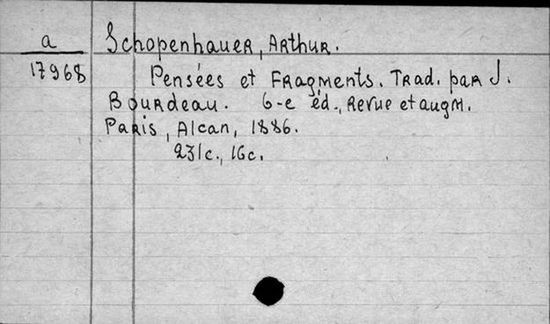 a Schopenhauer, Arthur.
17968 Pensées et Fragments. Trad. par J.
Bourdeau. 6-e éd., Revue et augm.
Paris, Alcan, 1886.
231c., 16c.